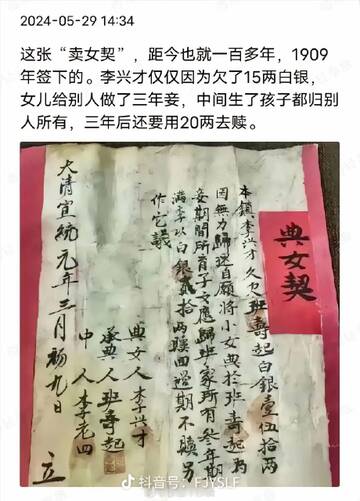 2024-05-29 14:34
这张“卖女契”，距今也就一百多年，1909
年签下的。李兴才仅仅因为欠了15两白银，
女儿给别人做了三年妾，中间生了孩子都归别
人所有，三年后还要用20两去赎。
典女契
本鎮李兴才久欠班壽起白银壹伍拾两
因無力歸还自願將小女典於班壽起為
妾期間所育子女應歸班家所有叁年期
滿李以白银贰拾两贖回過期不贖另
作它議
典女人李兴才
承典人班壽起
中人李老四
大清宣統元年三月初九日 立
抖音号：FJYSLF